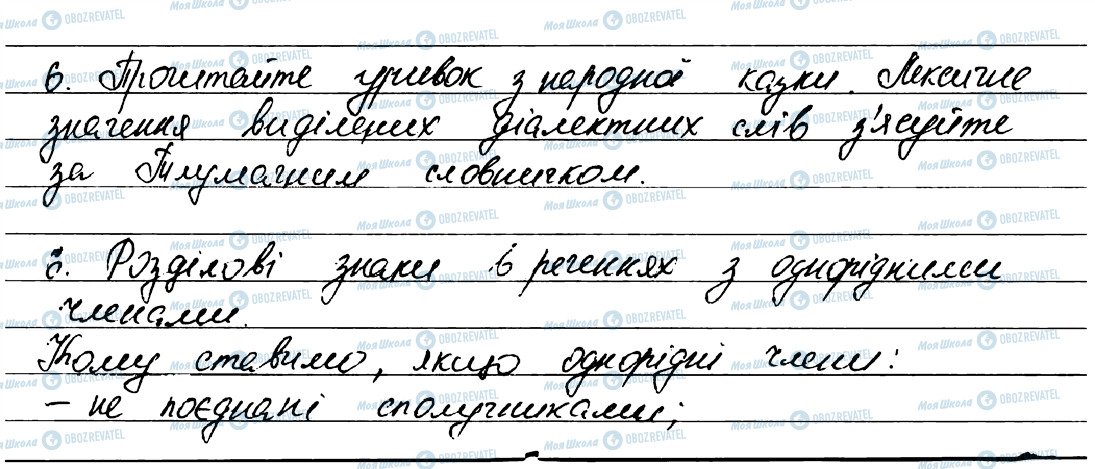 6. Прочитайте уривок з народної казки. Лексичне
значення виділених діалектних слів з'ясуйте
за Тлумачним словничком.
б. Розділові знаки в реченнях з однорідними
членами.
Кому ставимо, якщо однорідні члени:
– не поєднані сполучниками;